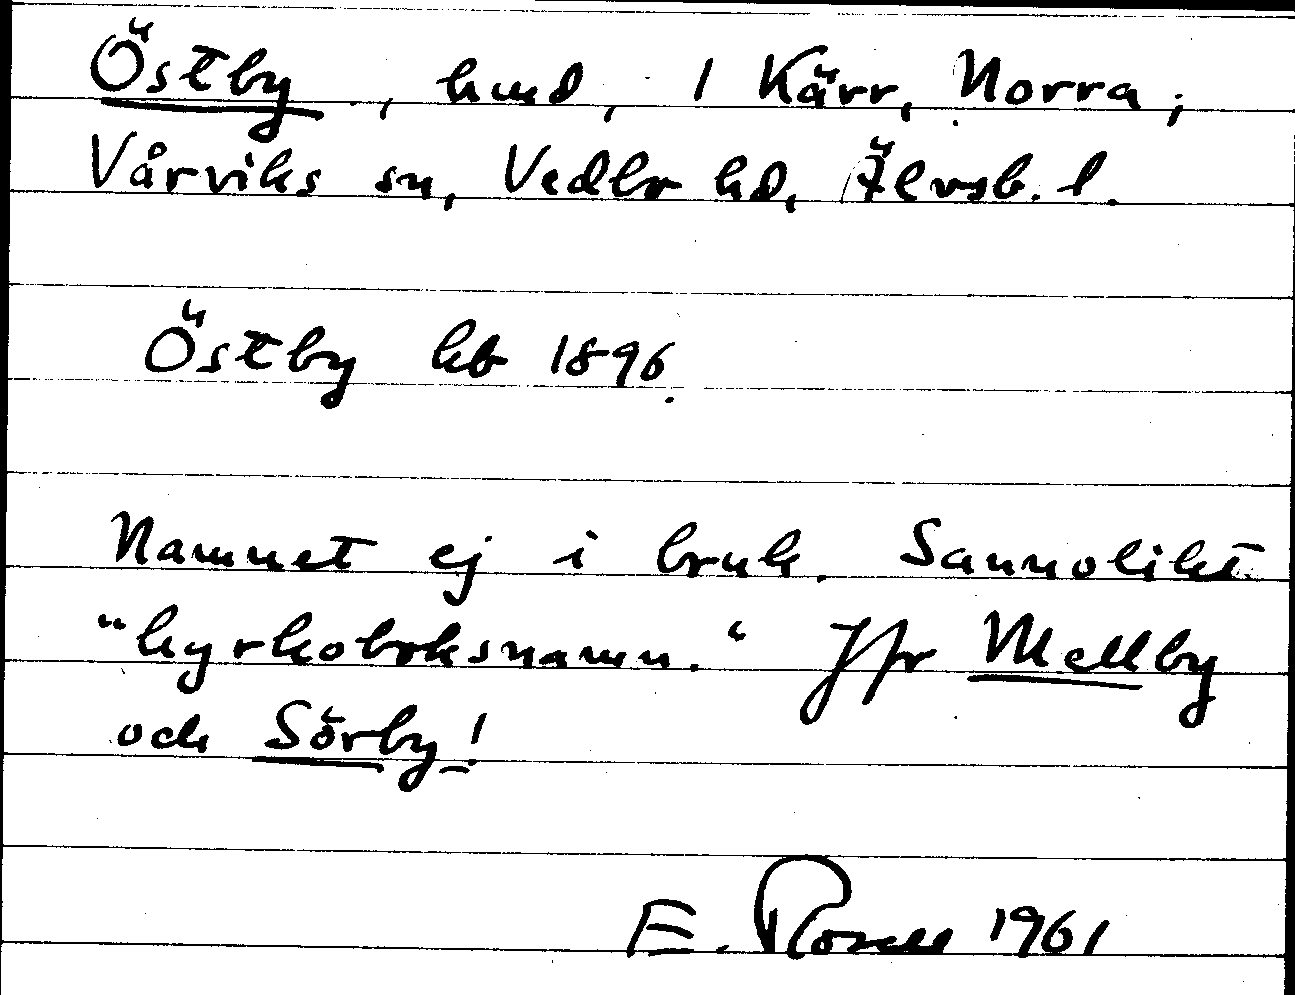 Östby, hmd, 1 Kärr, Norra;
Vårviks sn, Vedbo hd, Älvsb. l.
Östby kb 1896.
Namnet ej i bruk. Sannolikt
"kyrkoboksnamn." Jfr Mellby
och Sörby!
E. Rosell 1961